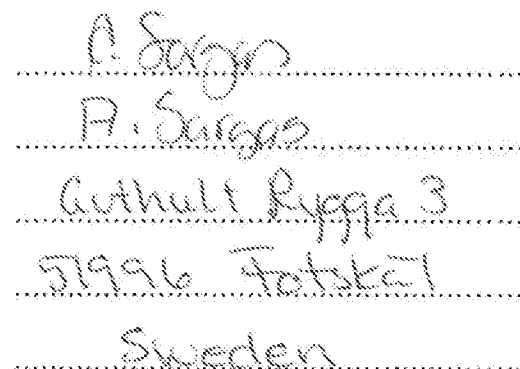 A. Sargas
A. Sargas
Guthult Rygga 3
51996 Fotskäl
Sweden